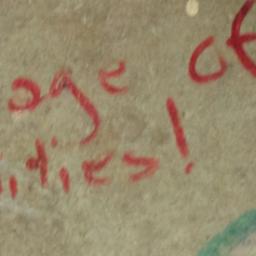 age of
ities!